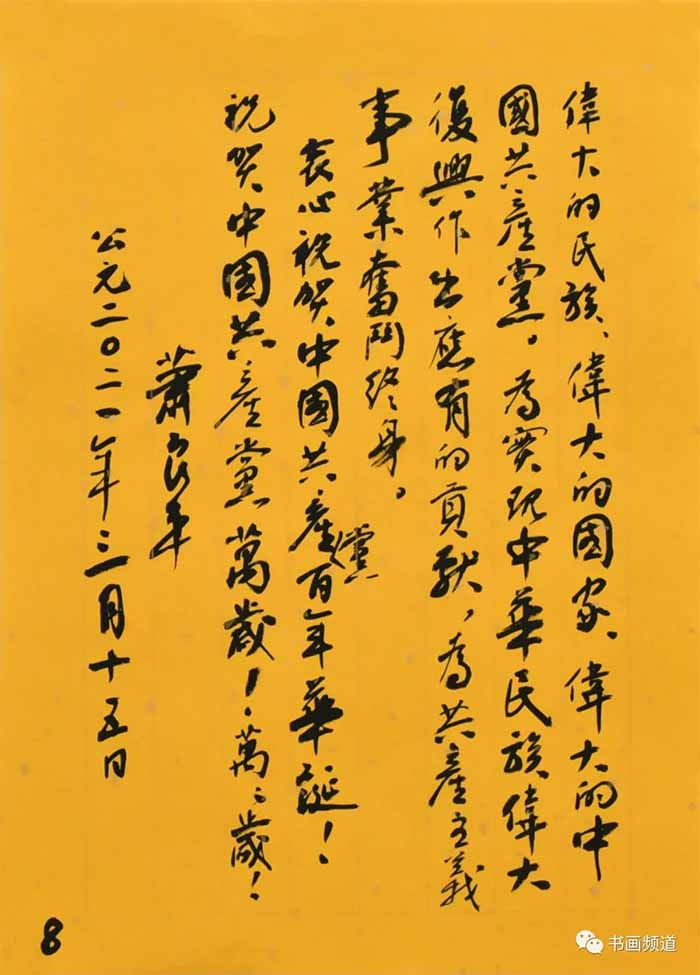 偉大的民族、偉大的國家、偉大的中
國共産黨。為實現中華民族偉大
復興作出應有的貢獻,為共産主義
事業奮鬥終身。
衷心祝贺中國共産黨百年華誕!
祝贺中國共産黨萬歲!萬〻歲!
蕭良平
公元二〇二一年三月十五日
8
书画频道